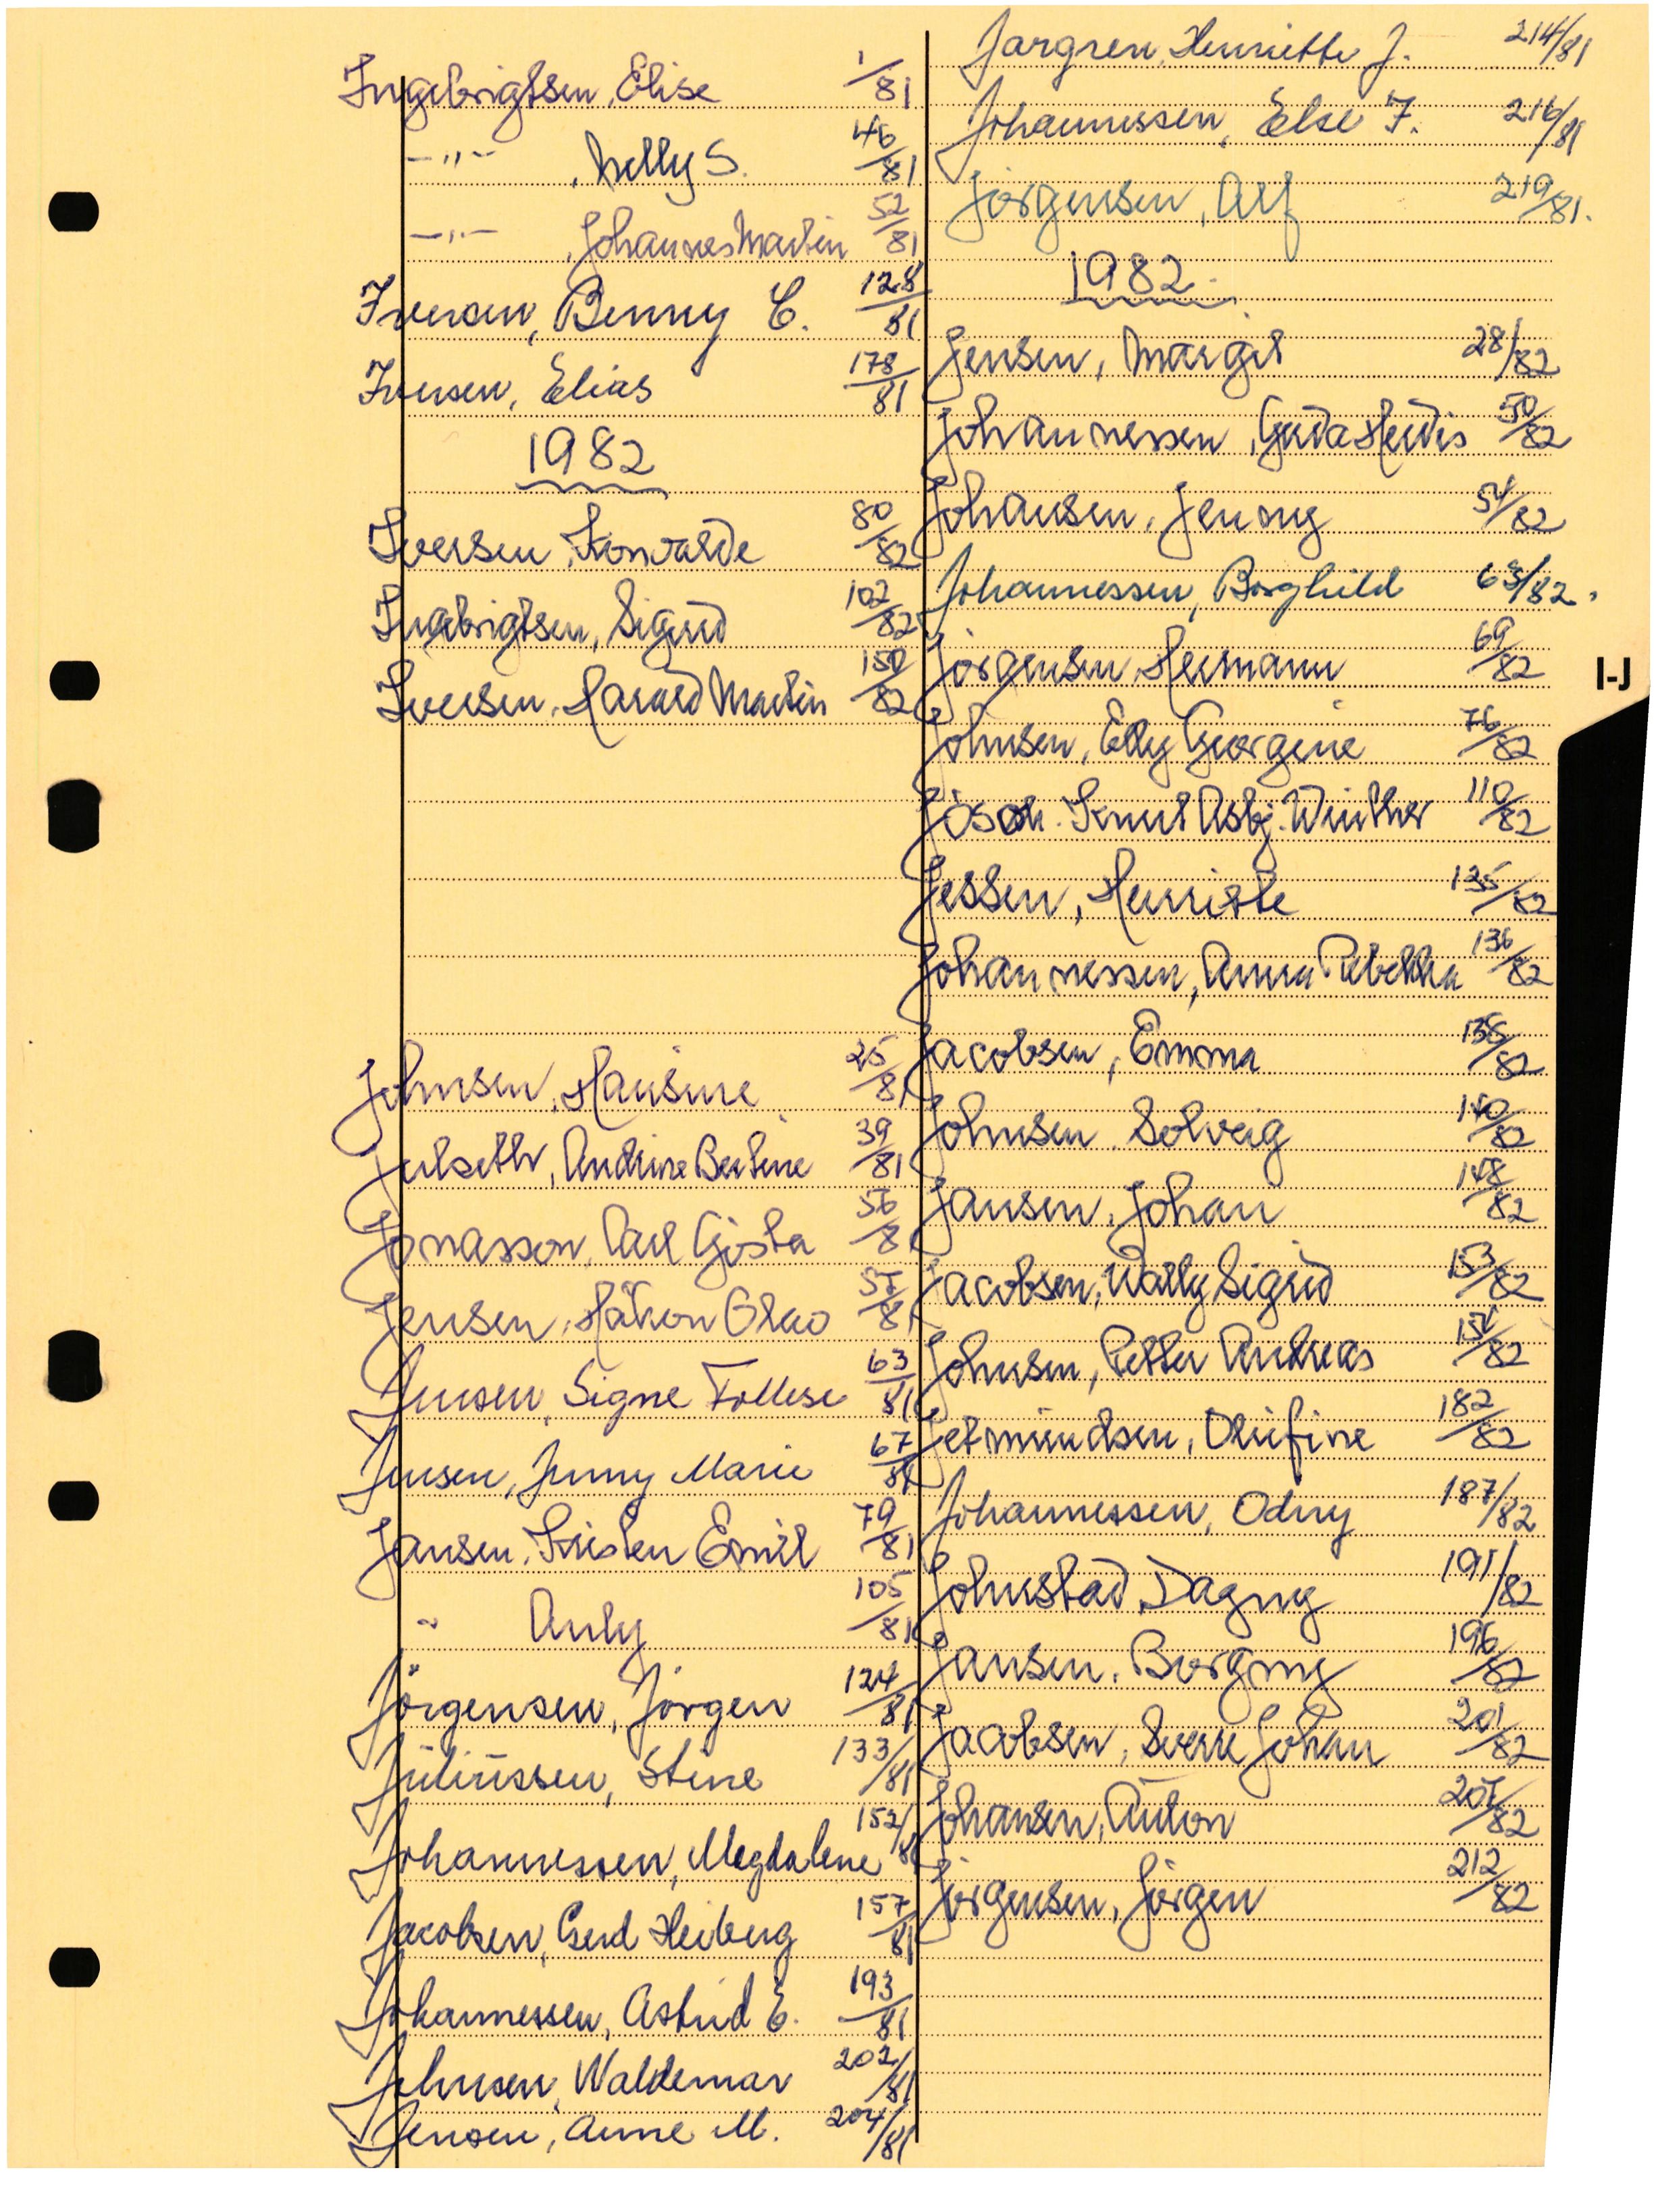 Ingebrigtsen, Elise 1/81
-"- , Nelly S. 46/81
-"- , Johannes Martin 52/81
Iversen, Benny C. 128/81
Iversen, Elias 178/81
1982
Iversen, Konvalde 80/82
Ingebrigtsen, Sigrid 102/82
Iversen, Harald Martin 150/82
Johnsen, Hansine 25/81
Julseth, Andrine Bertine 39/81
Jonasson, Carl Gösta 56/81
Jensen, Håkon Olav 57/81
Jensen, Signe Follese 63/81
Jensen, Jenny Marie 67/81
Jansen, Kristen Emil 79/81
" Anly 105/81
Jörgensen, Jörgen 124/81
Juliussen, Stine 133/81
Johannessen, Magdalene 152/81
Jacobsen, Gerd Heiberg 157/81
Johannessen, Astrid E. 193/81
Johnsen, Waldemar 202/81
Jensen, Anne M. 204/81
Jargren, Henriette J. 214/81
Johannessen, Else F. 216/81
Jörgensen, Alf 219/81.
1982.
Jensen, Margit 28/82
Johannessen, Gerda Herdis 50/82
Johansen, Jenny 54/82
Johannessen, Borghild 63/82.
Jörgensen, Hermann 69/82
Johnsen, Elly Georgine 76/82
Knut Asbj. Winther 110/82
Jessen, Henriette 125/82
Johannessen, Anna Rebekka 136/82
Jacobsen, Emma 138/82
Johnsen, Solveig 140/82
Jansen, Johan 148/82
Jacobsen, Wally Sigrid 153/82
Johnsen, Petter Andreas 154/82
Jetmundsen, Olufine 182/82
Johannessen, Odny 187/82
Johnstad, Dagny 191/82
Jansen, Borgny 196/82
Jacobsen, Sverre Johan 201/82
Johansen, Anton 207/82
Jörgensen, Jörgen 212/82
I-J